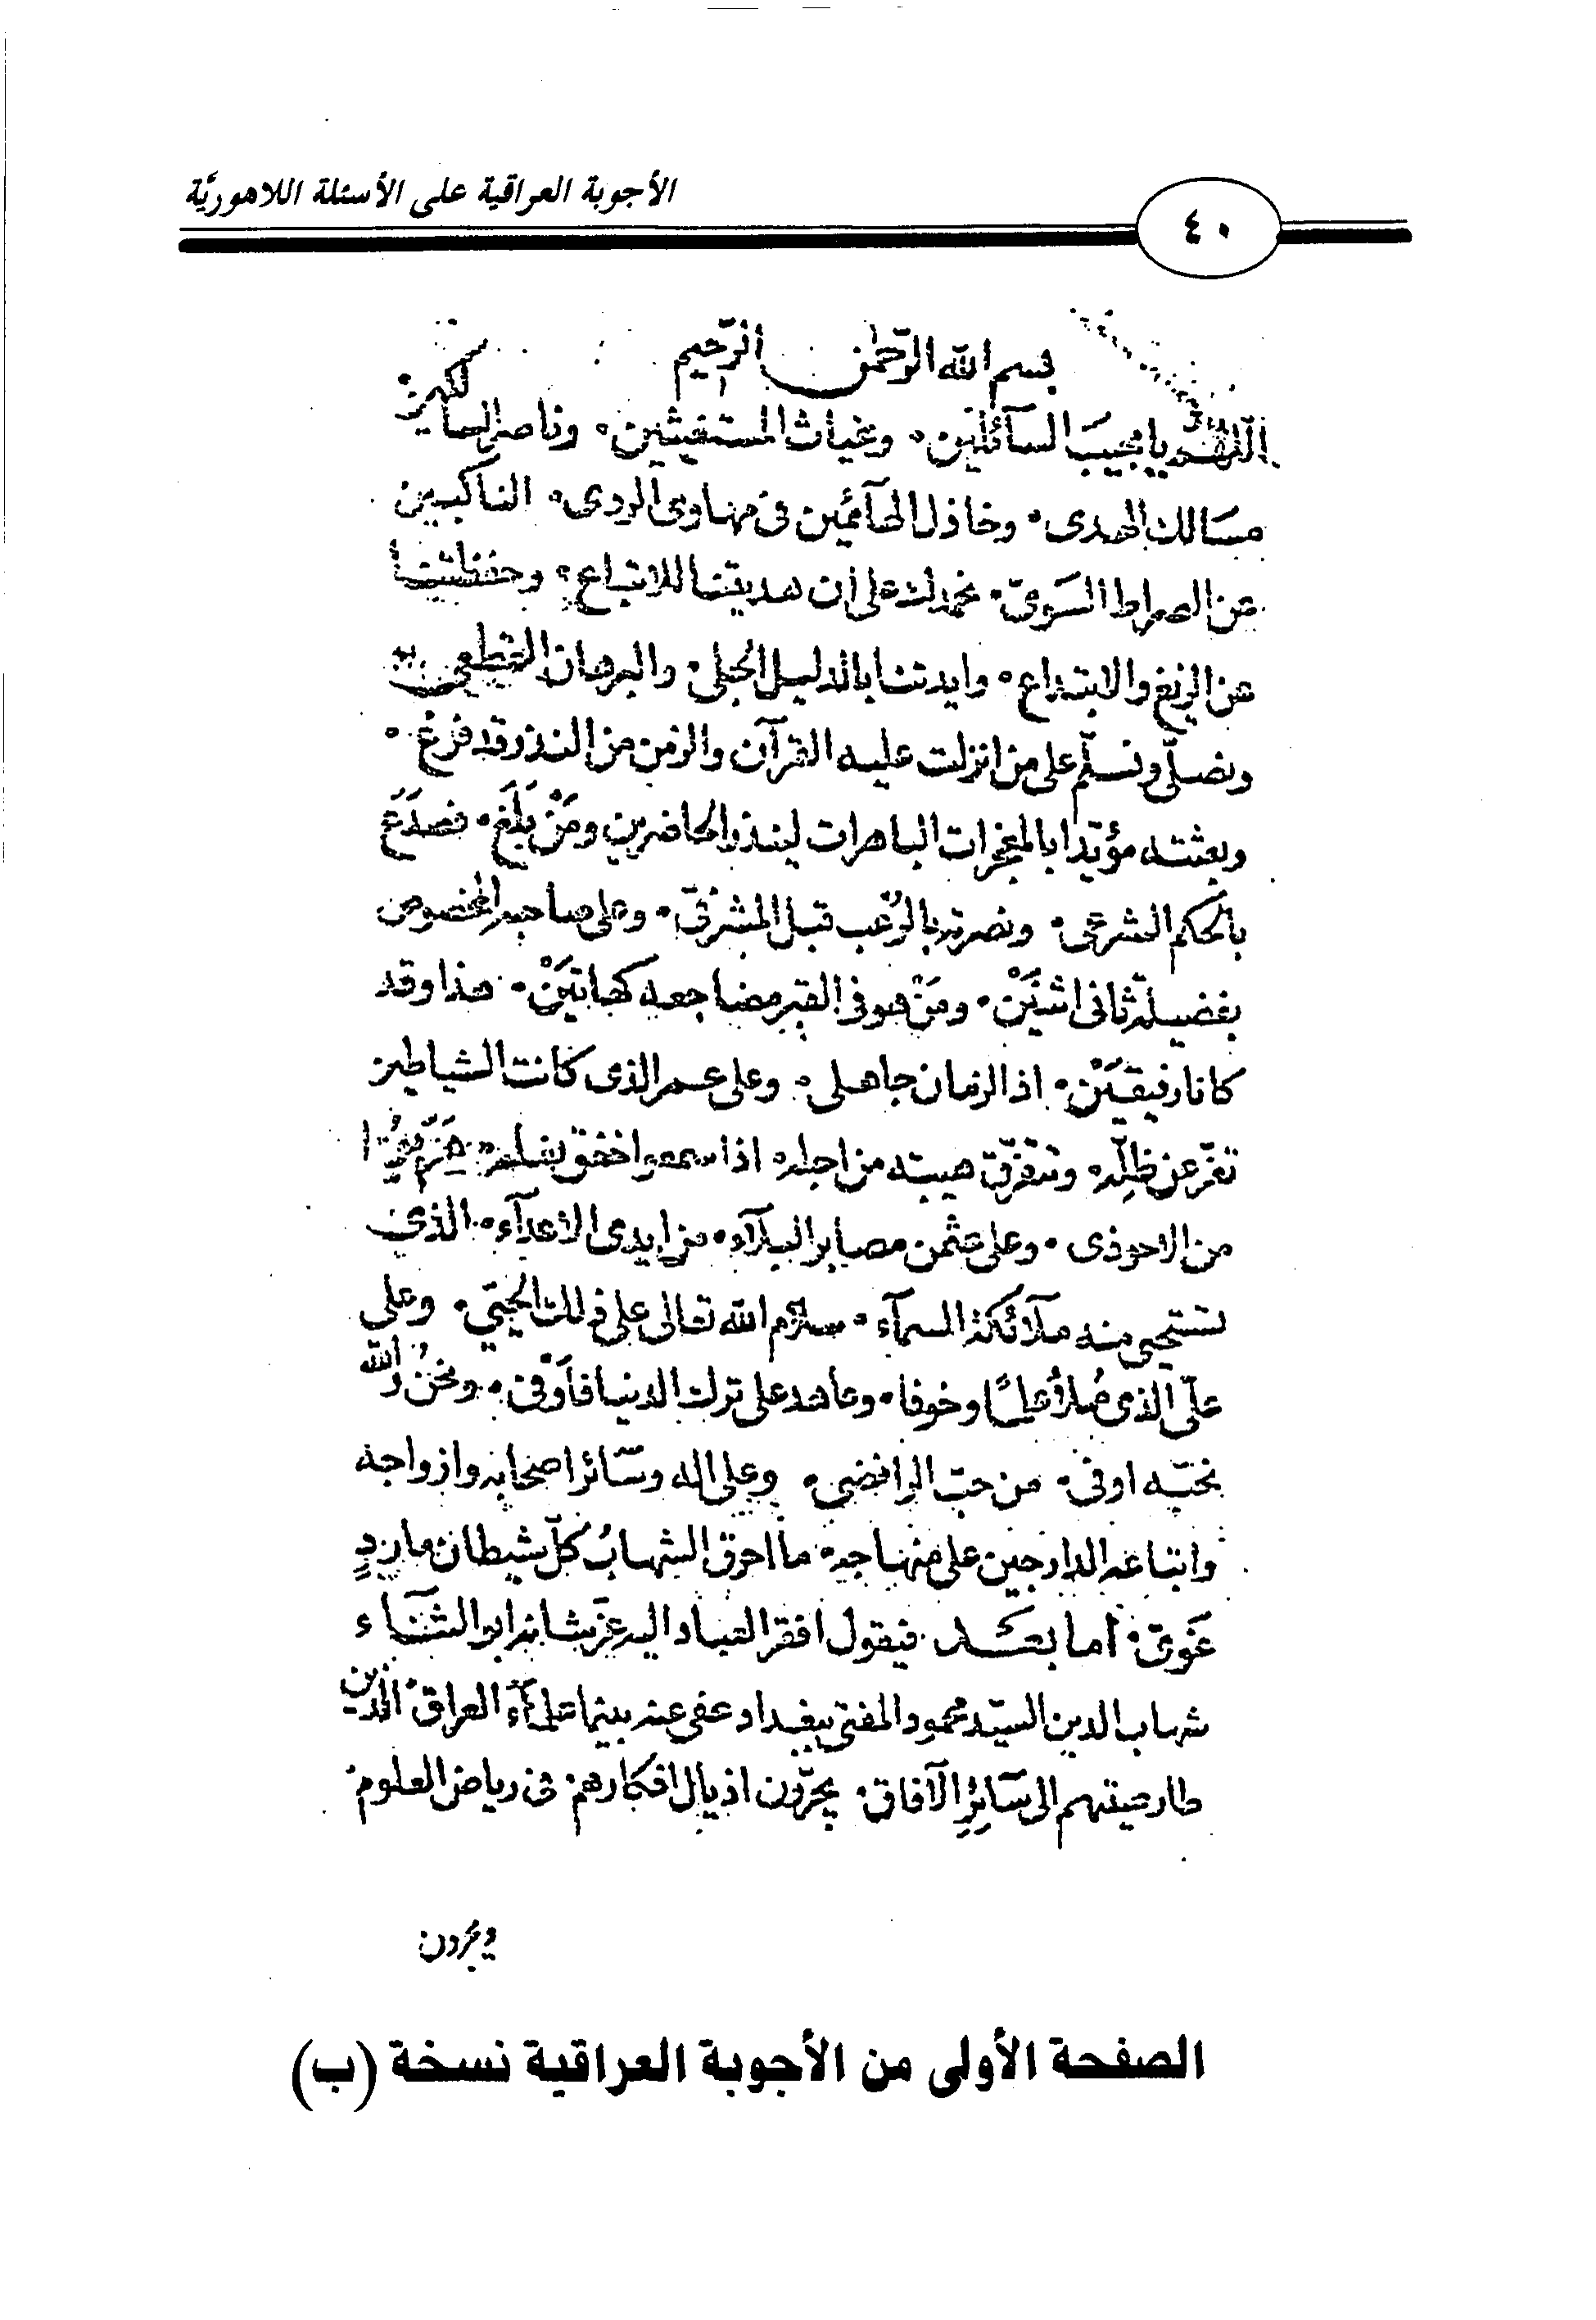 الأجوبة العراقية على الأسئلة اللاهوريَّة
٤٠
بسم الله الرّحمن الرّحيم
اللهم يا مجيبَ السآئلين ٥ وغياث المستغيثين ٥ وناصر السالكين
مسَالك الهدى ٥ وخاذل الهآئمين فى مهاوى الردى ٥ الناكبين
عن الصراط السَوىّ ٥ نحمدك على أن هديتنا للاتباع ٥ وحفظتنا
عن الزيغ والابتداع ٥ وايدتنا بالدليل الجلى ٥ والبرهان القطعى
ونصلّى ونسلّم على من انزلت عليه القرآن والزمن من النذر قد فرغ ٥
وبعثته مؤيّدا بالمعجزات الباهرات لينذر الحاضرين ومَنْ بَلَغَ ٥ فصدَعَ
بالحكم الشرعى ٥ ونصرته بالرّعب قبل المشرفىّ ٥ وعلى صاحبه المخصوص
بفضيلة ثانى اثنَيْن ٥ ومَنْ هو فى القبر مضاجعه كهاتَيْن ٥ هذا وقد
كانا رفيقَيْن ٥ اذ الزمان جاهلى ٥ وعلى عمر الذى كانت الشياطين
تفرّ عن ظلِّه ٥ وتتفرّق هيبته من اجله ٥ اذا سمعوا خفق نعله
من الاحوذى ٥ وعلى عثمن مصابر البلآء ٥ من ايدى الاعدآء ٥ الذى
تستحيى منه ملآئكة السمآء ٥ سلام الله تعالى على ذلك الحيىّ ٥ وعلى
علىّ الذى مُلأ علمًا وخوفا ٥ وعاهد على ترك الدنيا فاَوْفى ٥ ونحنُ والله
بحبّه اوفى ٥ من حبّ الرافضى ٥ وعلى اله وسَآئر اصحابه وازواجه
واتباعه الدارجين على منهاجه ٥ ما احرق الشهابُ كلّ شيطان ماردٍ
غَوىّ ٥ اما بعـد فيقول افقر العباد اليه عزّ شانه ابو الثنآء
شهاب الدين السيّد محمود المفتى ببغداد عفى عنه بينما علمآء العراق ٥ الذين
طار صيتهم الى سَآئِرِ الآفاق ٥ يجرّون اذيال افكارهم ٥ فى رياض العلوم ٥
ويجرون
الصفحة الأولى من الأجوبة العراقية نسخة (ب)